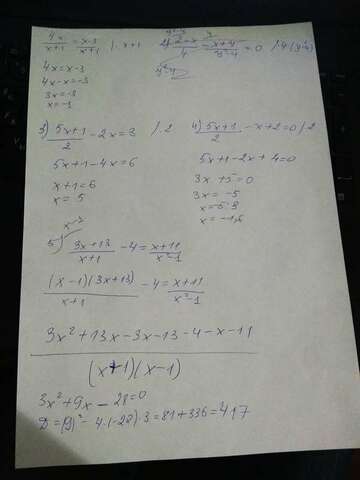 4x/x+1 = x-3/x+1 /·x+1
4x=x-3
4x-x=-3
3x=-3
x=-1
x+4/y²-4 =0 /·4(y²-4)
y²-4
3) 5x+1/2 -2x=3 /·2
5x+1-4x=6
x+1=6
x=5
4) 5x+1/2 -x+2=0 /2
5x+1-2x+4=0
3x+5=0
3x=-5
x=-5:3
x=-1,6
5) 3x+13/x+1 -4= x+11/x²-1
(x-1)(3x+13)/x+1 -4= x+11/x²-1
3x²+13x-3x-13-4-x-11
(x+1)(x-1)
3x²+9x-28=0
D=(9)²-4·(-28)·3=81+336=417